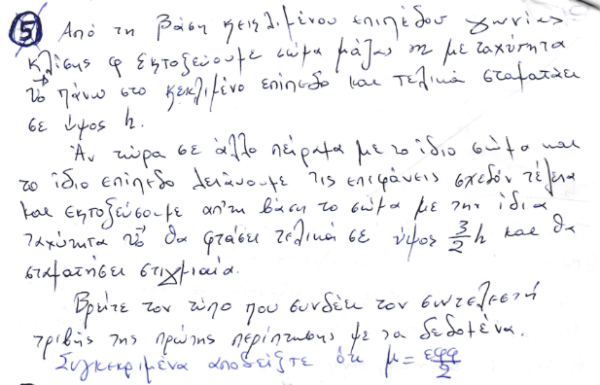 5 Από τη βάση κεκλιμένου επιπέδου γωνίας
κλίσης φ εκτοξεύουμε σώμα μάζας m με ταχύτητα
υ₀ πάνω στο κεκλιμένο επίπεδο και τελικά σταματάει
σε ύψος h.
Αν τώρα σε άλλο πείραμα με το ίδιο σώμα και
το ίδιο επίπεδο λειάνουμε τις επιφάνεις σχεδόν τέλεια
και εκτοξεύσουμε απ'τη βάση το σώμα με την ίδια
ταχύτητα υ₀ θα φτάσει τελικά σε ύψος 3/2 h και θα
σταματήσει στιγμιαία.
Βρείτε τον τύπο που συνδέει τον συντελεστή
τριβής της πρώτης περίπτωσης με τα δεδομένα.
Συγκεκριμένα αποδείξτε ότι μ = εφφ/2